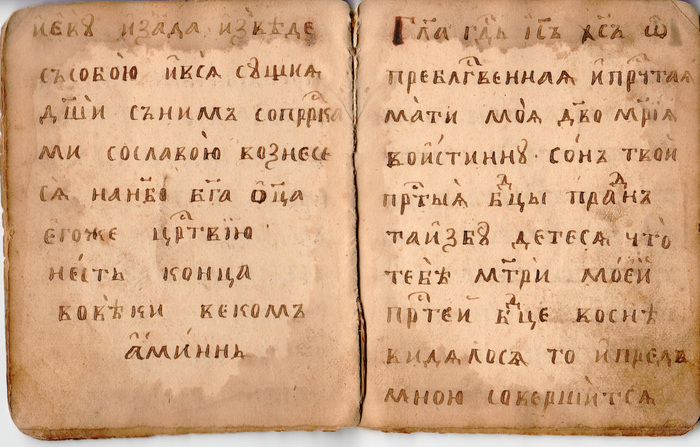 и҆єкꙋ и҆за́да и҆звѣде
съсобо́ю и҆ѵ́ся сꙋщия
дш҃и сънимъ сопрⷪ҇рка
ми сославо́ю вознесе
ся нанб҃о бг҃а ѻц҃а
є҆го́же црⷭ҇твїю
не́сть конца
вовѣ́ки векомъ
а҆ми́ннь
Гл҃а гдⷭ҇ь іс҃ъ хс҃ъ ѿ
преблгⷭ҇венная и҆прчⷭ҇тая
мати моя̀ дв҃о мр҃ія
вои́стиннꙋ · со́нъ тво́й
прⷭ҇тыя бⷣцы праⷣнъ
таи҆збꙋ детеся что̀
тебѣ̀ мт҃ри мое́й
прⷭ҇тей бⷣце воснѣ
видялося то и҆предъ
мною соверши́тся